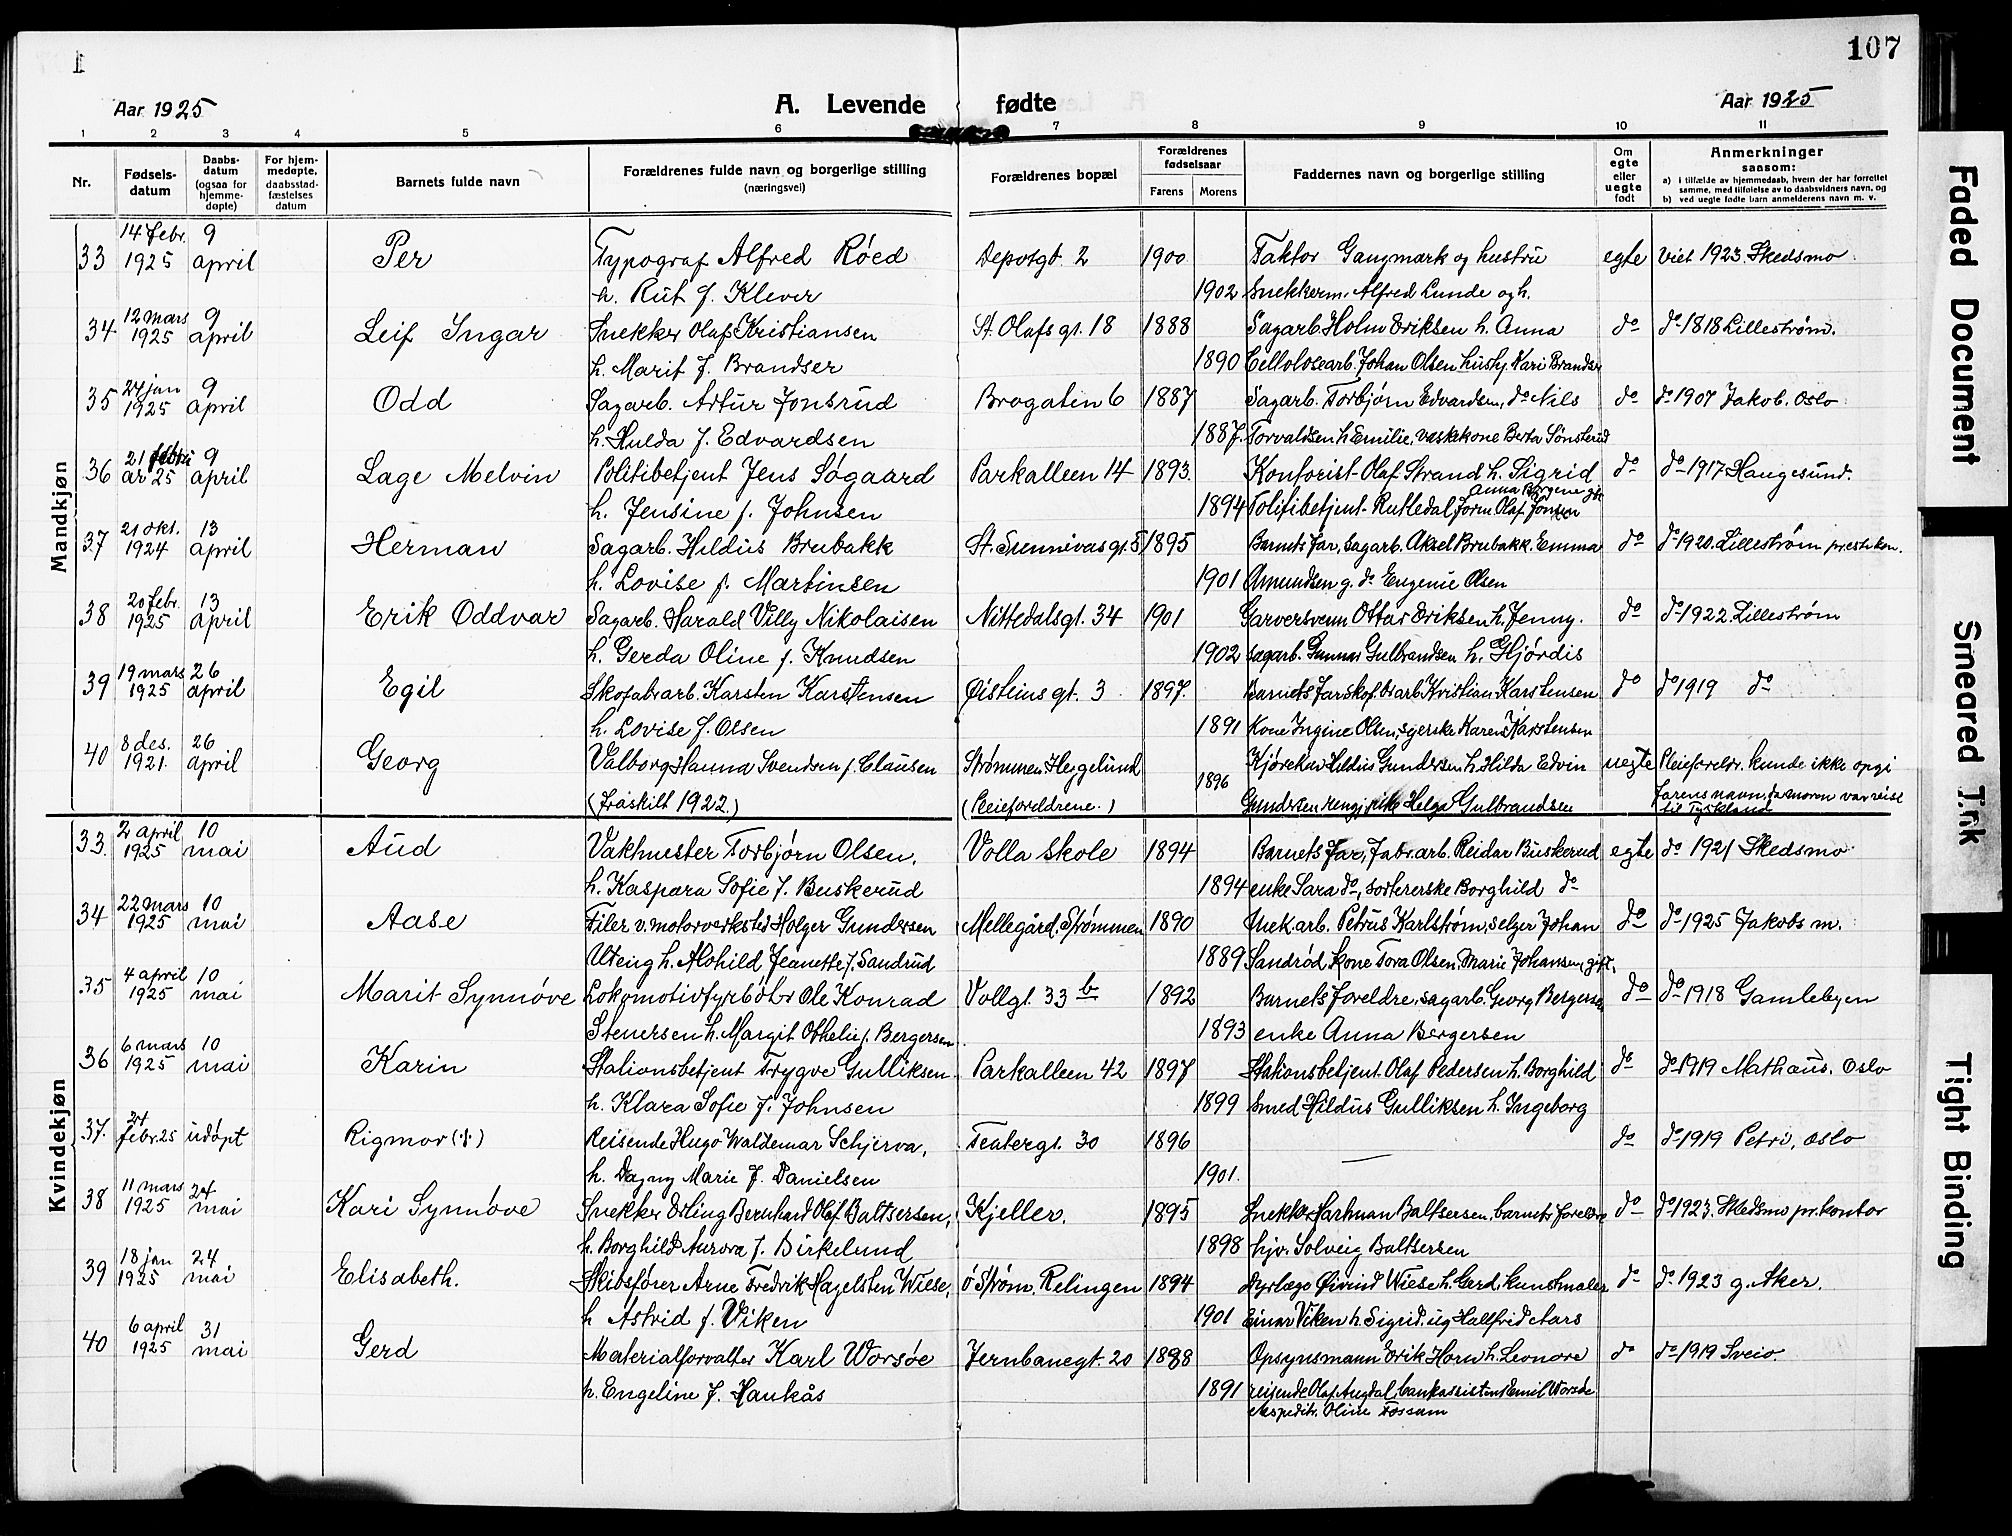 1
107
Aar 1925
A. Levende fødte
Aar 1925
1 2 3 4 5 6 7 8 9 10 11
Nr.
Fødsels-
datum
Daabs-
datum
(ogsaa for
hjemme-
døpte)
For hjem-
medøpte,
daabsstad-
fæstelses
datum
Barnets fulde navn
Forældrenes fulde navn og borgerlige stilling
(næringsvei)
Forældrenes bopæl
Forældrenes
fødselsaar
Farens Morens
Faddernes navn og borgerlige stilling
Om
egte
eller
uegte
født
Anmerkninger
saasom:
a) i tilfælde av hjemmedaab, hvem der har forrettet
samme, med tilføielse av to daabsvidners navn, og
b) ved uegte fødte barn anmelderens navn m. v.
Mandkjøn
14 febr. 9
33 1925 april Per Typograf Alfred Røed Depotgt. 2 1900 Faktor Gangmark og hustru egte viet 1923 Skedsmo.
h. Rut f. Klever 1902 Snekkerm. Alfred Lunde og h.
12 mars 9
34 1925 april Leif Ingar Snekker Olaf Kristiansen St. Olafs gt. 18 1888 Sagarb. Holm Eriksen h. Anna do do 1818 Lillestrøm.
h. Marit f. Brandser 1890 Cellolosearb. Johan Olsen hushj. Kari Brandser
24 jan 9
35 1925 april Odd Sagarb. Artur Jonsrud Brogaten 6 1887 Sagarb. Torbjørn Edvardsen, do Nils do do 1907 Jakob. Oslo
h. Hulda f. Edvardsen 1887. Torvaldsen h Emilie, vaskekone Berta Sønsterud
21 febru 9
36 ar 25 april Lage Melvin Politibetjent Jens Søgaard Parkalleen 14 1893. Kontorist Olaf Strand h. Sigrid do do 1917 Haugesund.
h. Jensine f. Johnsen 1894 Politibetjent Rutledal form. Olaf Jonsen
21 okt. 13
37 1924 april Herman Sagarb. Hildus Brubakk St. Sunnivas gt. 5 1895 Barnets far, sagarb. Aksel Brubakk. Emma do do 1920. Lillestrøm prestekon.
h. Lovise f. Martinsen 1901 Amundsen g. do Eugenie Olsen
20 febr. 13
38 1925 april Erik Oddvar Sagarb. Harald Villy Nikolaisen Nittedalsgt. 34 1901 Garversvenn Ottar Eriksen h. Jenny. do do 1922 Lillestrøm
h. Gerda Oline f. Knudsen 1902 sagarb. Gunnar Gulbrandsen h. Hjørdis
19 mars 26
39 1925 april Egil Skofabrarb. Karsten Karstensen Øisteins gt. 3 1897. Barnets far skofabrarb. Kristian Karstensen do do 1919 do
h. Lovise f. Olsen 1891 Kone Ingine Olsen, syerske Karen Karstensen
8 des. 26
40 1921. april Georg Valborg Hanna Svendsen f. Clausen Strømmen. 1896 Kjørekar Hildus Gundersen h. Hilda Edvin uegte Pleieforeldr. kunde ikke opgi
(fraskilt 1922) (Pleieforeldrene.) Gundersen Helga Gulbrandsen farens navn, da moren var reist
til Tyskland
Kvindekjøn
2 april 10
33. 1925 mai Aud Vaktmester Torbjørn Olsen, Volla skole 1894 Barnets far, fabr.arb. Reidar Buskerud egte do 1921 Skedsmo
h. Kaspara Sofie f. Buskerud 1894 enke Sara do, sortererske Borghild do
22 mars 10
34 1925 mai Aase Filer v. motorverksted Holger Gundersen Mellegård. Strømmen 1890 Snek.arb. Petrus Karlstrøm, selger Johan do do 1925 Jakobs m.
Uteng h. Alohild Jeanette f. Sandrud 1889 Sandrød, kone Tora Olsen, Marie Johansen, gift.
4 april 10
35 1925 mai Marit Synnøve Lokomotivfyrbøter Ole Konrad Vollgt. 33 b 1892 Barnets foreldre, sagarb. Georg Bergersen do do 1918 Gamlebyen
Stenersen h. Margit Othelie f. Bergersen 1893 enke Anna Bergersen
6 mars 10
36 1925 mai Karin Stationsbetjent Trygve Gulliksen Parkalleen 42 1897 Stationsbetjent Olaf Pedersen h. Borghild do do 1919 Mathæus. Oslo
h. Klara Sofie f. Johnsen 1899 Smed Hildus Gulliksen h. Ingeborg
24
37. febr. 25 udøpt Rigmor (†) Reisende Hugo Waldemar Schjerva, Teatergt. 30 1896 do do 1919 Petri, Oslo
h. Dagny Marie f. Danielsen 1901.
11 mars 24
38 1925 mai Kari Synnøve Snekker Erling Bernhard Olaf Baltsersen, Kjeller. 1895 Snekker Hartman Baltsersen, barnets foreldre do do 1923. Skedsmo pr.kontor
h. Borghild Aurora f. Birkelund 1898 hjv. Solveig Baltsersen
18 jan 24
39 1925 mai Elisabeth. Skibsfører Arne Fredrik Hagelsten Wiese, ø Strøm. Relingen 1894 Dyrlæge Øivind Wiese h. Gerd, kunstmaler do do 1923 g. Aker.
h Astrid f. Viken 1901 Einar Viken h. Sigrid. ug Hallfrid Aars
6 april 31
40 1925 mai Gerd Materialforvalter Karl Worsøe Jernbanegt. 20 1888 Opsynsmann Erik Horn h. Leonore do do 1919 Sveio.
h. Engeline f. Haukås 1891 reisende Olaf Augdal, bankassistent Emil Worsøe
ekspeditr. Oline Fossum
Faded Document
Smeared Ink
Tight Binding